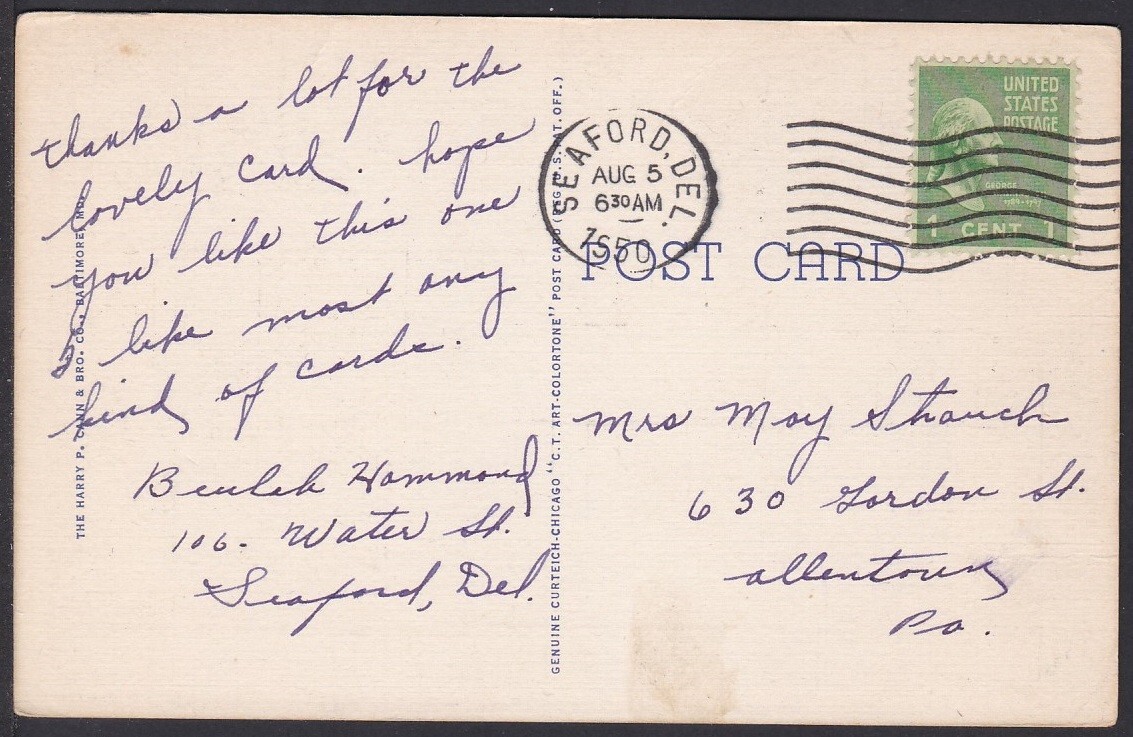 thanks a lot for the
lovely card. hope
you like this one
I like most any
kind of cards.
Beulah Hammond
106. Water St.
Seaford, Del.
THE HARRY P. CANN & BRO. CO., BALTIMORE, MD.
GENUINE CURTEICH-CHICAGO "C.T. ART-COLORTONE" POST CARD (REG. U.S. PAT. OFF.)
SEAFORD, DEL.
AUG 5
630 AM
1950
UNITED
STATES
POSTAGE
GEORGE
1789-1797
1 CENT 1
POST CARD
Mrs May Strauch
630 Gordon St.
Allentown
Pa.